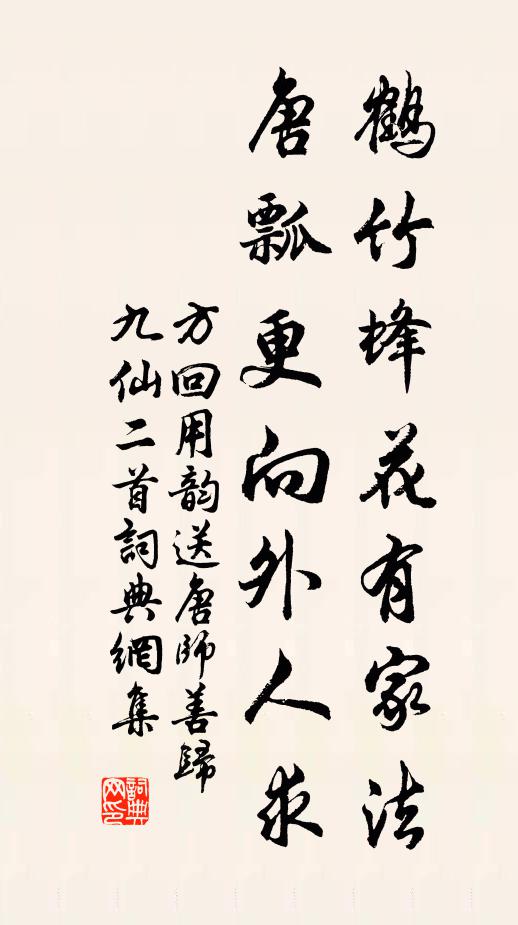 鹤竹蜂花有家法
唐瓢更向外人求
方回用韵送唐师善歸
九仙二首詞典網集
詞典网印